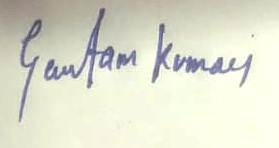 Gautam Kumar